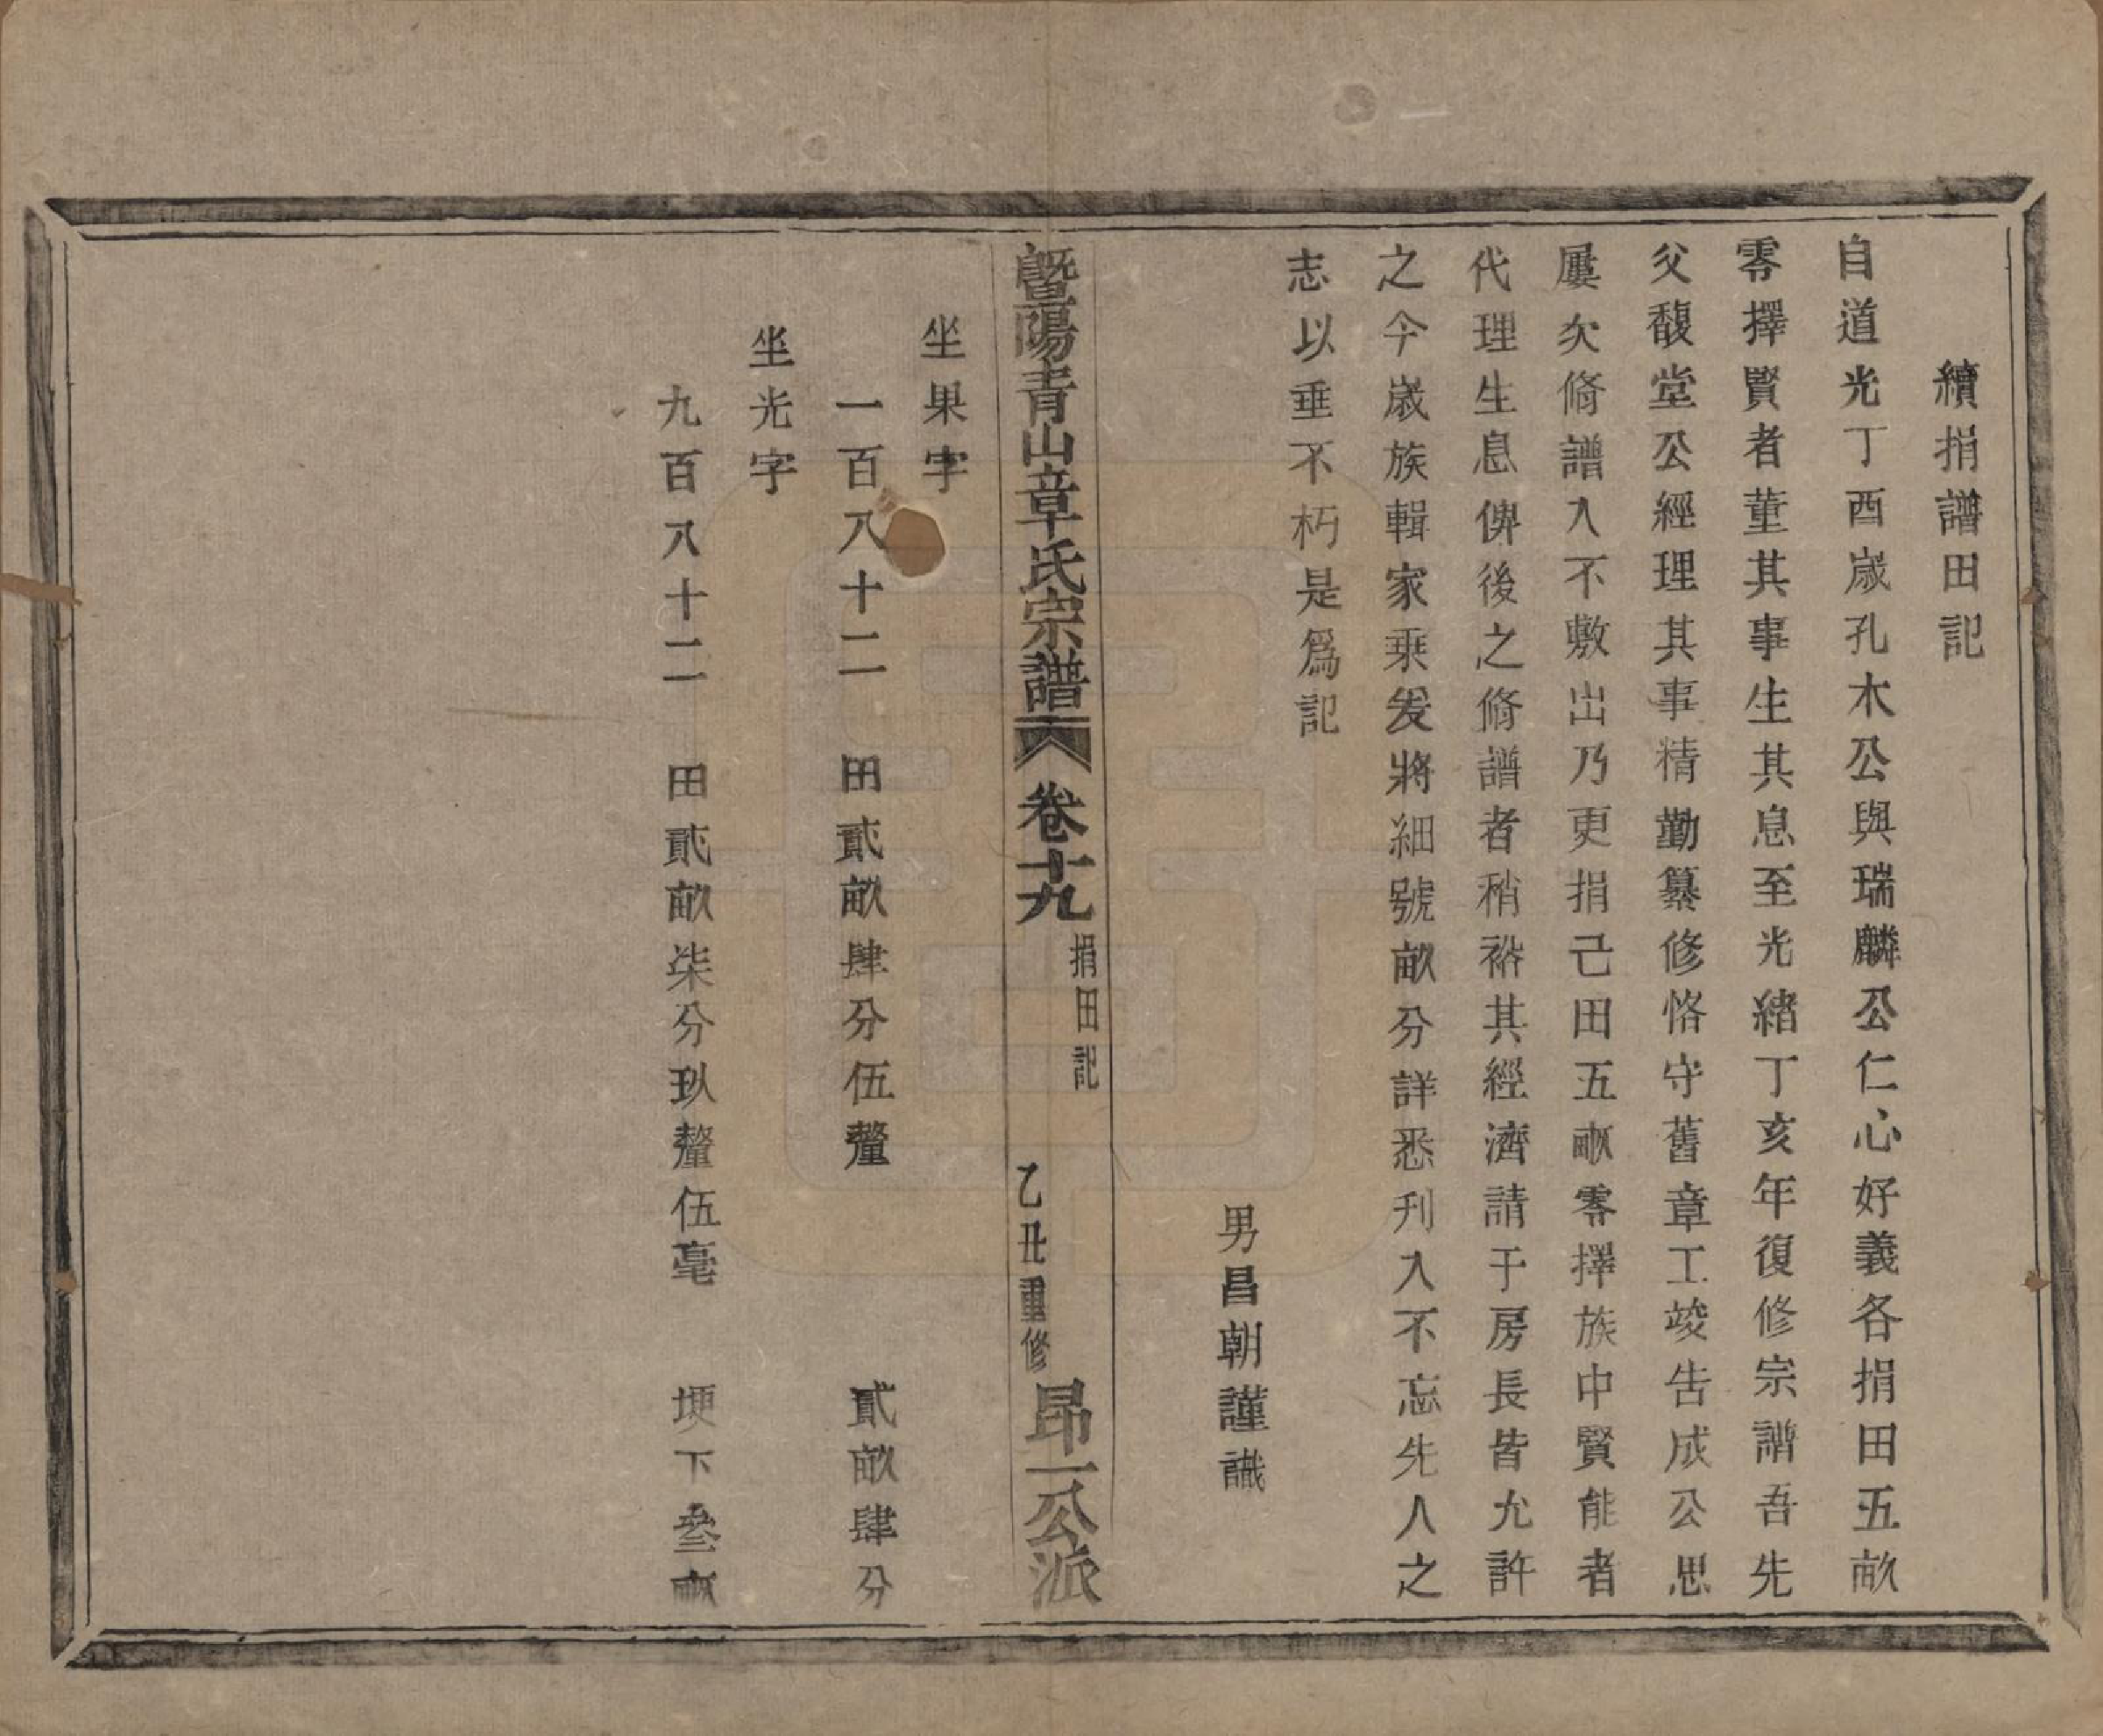 續捐譜田記
自道光丁酉歲孔木公與瑞麟公仁心好義各捐田五畝
零擇賢者董其事生其息至光緒丁亥年復修宗譜吾先
父馥堂公經理其事精勤纂修恪守舊章工竣告成公思
屢次脩譜入不敷出乃更捐己田五畝零擇族中賢能者
代理生息俾後之脩譜者稍裕其經濟請于房長皆允許
之今歲族輯家乘爰將細號畝分詳悉刋入不忘先人之
志以垂不朽是爲記
男昌朝謹識
暨陽青山章氏宗譜 卷十九 捐田記 乙丑重修 昂一公派
坐果字
一百八十二 田貳畝肆分伍釐 貳畝肆分
坐光字
九百八十二 田貳畝柒分玖釐伍毫 埂下叄畝